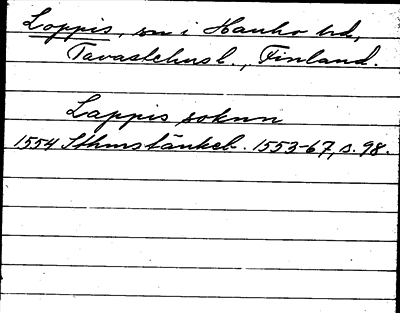 Loppis, sn i Hauho hd,
Tavastehusl., Finland.
Lappis soknn
1554 Sthmstänkeb. 1553-67, s. 98.